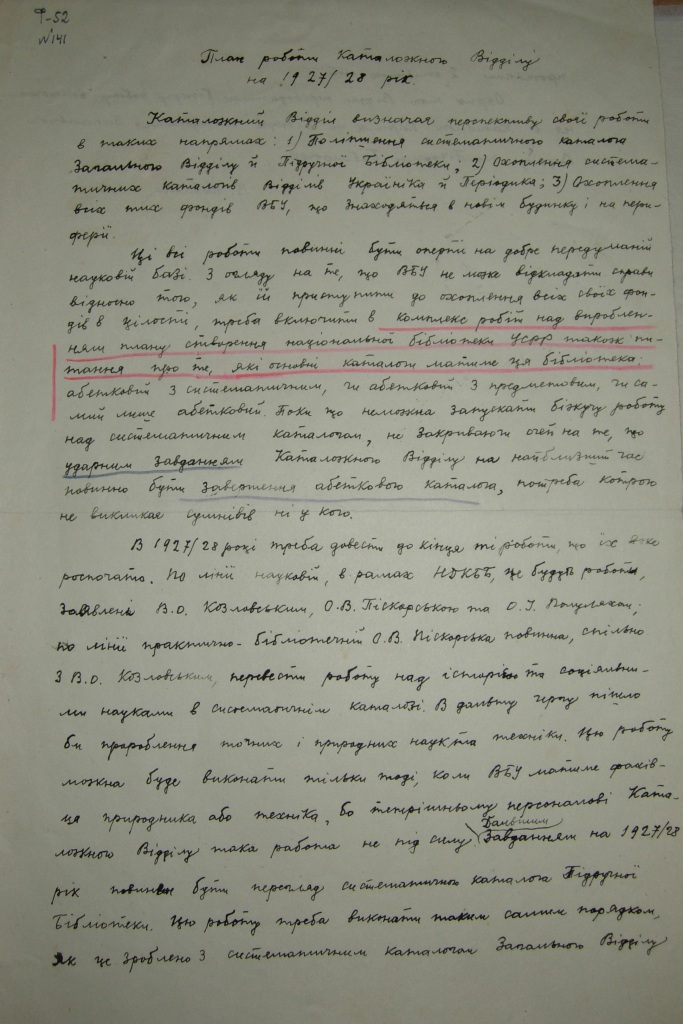 Ф-52
№141
План роботи Каталожного Відділу
на 1927/28 рік.
Каталожний Відділ визначає перспективу своєї роботи
в таких напрямах: 1) Поліпшення систематичного каталога
Загального Відділу й Підручної Бібліотеки; 2) Охоплення система-
тичних каталогів Відділів Україніка й Періодика; 3) Охоплення
всіх тих фондів ВБУ, що знаходяться в новім будинку і на пери-
ферії.
Ці всі роботи повинні бути оперті на добре передуманій
науковій базі. З огляду на те, що ВБУ не може відкладати справи
відносно того, як їй приступити до охоплення всіх своїх фон-
дів в цілості, треба включити в комплекс робіт над вироблен-
ням плану створення національної бібліотеки УСРР також пи-
тання про те, які основні каталоги матиме ця бібліотека:
абетковий з систематичним, чи абетковий з предметовим, чи са-
мий лише абетковий. Поки що неможна запускати біжучу роботу
над систематичним каталогом, не закриваючи очей на те, що
ударним завданням Каталожного Відділу на найближчий час
повинно бути завершення абеткового каталога, потреба котрого
не викликає сумнівів ні у кого.
В 1927/28 році треба довести до кінця ті роботи, що їх вже
розпочато. По лінії науковій, в рамах НДКББ, це будуть роботи,
заявлені В.О. Козловським, О.В. Піскорською та О.І.
по лінії практично-бібліотечній О.В. Піскорська повинна, спільно
з В.О. Козловським, перевести роботу над історією та соціяльни-
ми науками в систематичнім каталозі. В дальшу чергу пішло
би пророблення точних і природних наук та техніки. Цю роботу
можна буде виконати тільки тоді, коли ВБУ матиме фахів-
ця природника або техніка, бо теперішньому персоналові Ката-
ложного Відділу така робота не під силу. Дальшим завданням на 1927/28
рік повинен бути перегляд систематичного каталога Підручної
Бібліотеки. Цю роботу треба виконати таким самим порядком,
як це зроблено з систематичним каталогом Загального Відділу